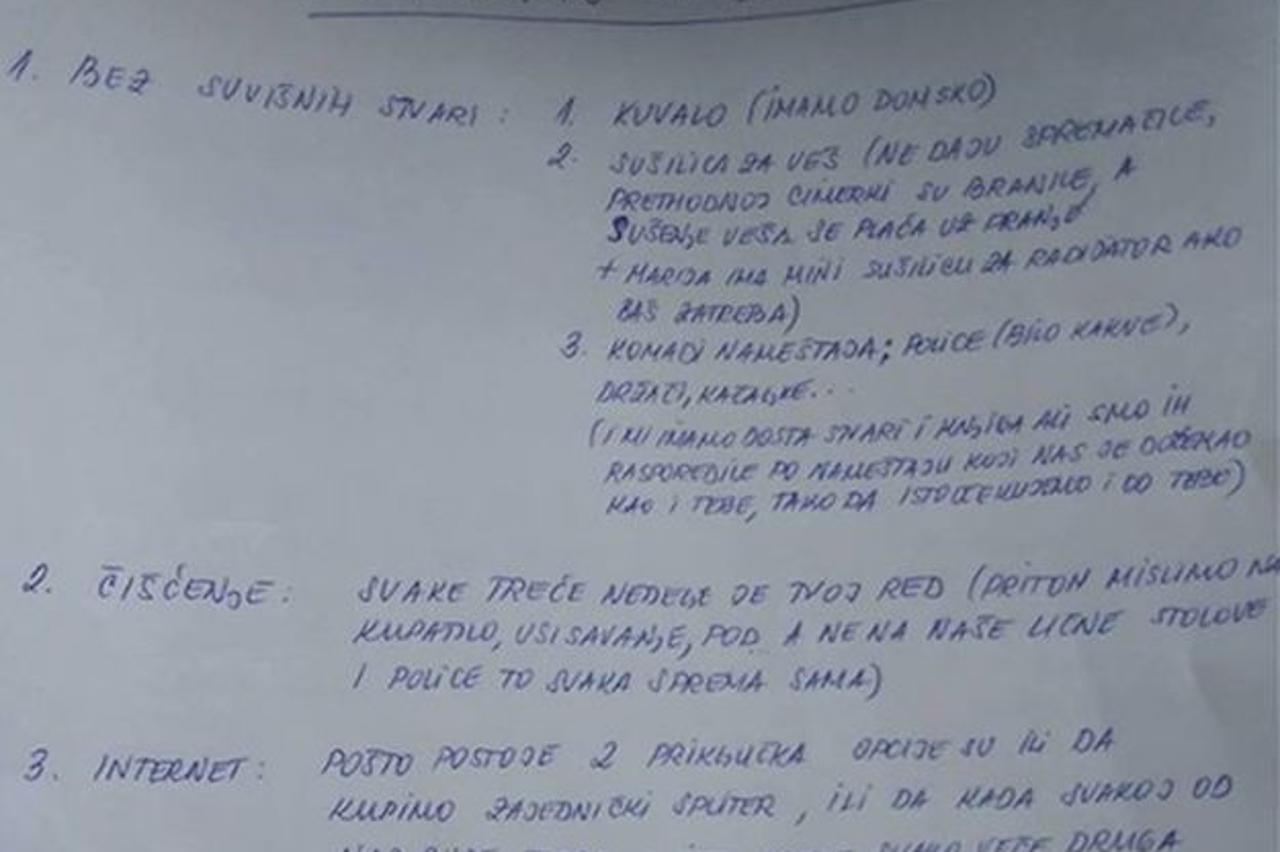 1. BEZ SUVIŠNIH STVARI : 1. KUVALO (IMAMO DOMSKO)
2. SUŠILICA ZA VEŠ (NE DAJU SPREMAČICE,
PRETHODNOJ CIMERKI SU BRANILE, A
SUŠENJE VEŠA SE PLAĆA UZ PRANJE
+ MARIJA IMA MINI SUŠILICU ZA RADIJATOR AKO
BAŠ ZATREBA)
3. KOMADI NAMEŠTAJA; POLICE (BILO KAKVE),
DRŽAČI, KAZALJKE...
(I MI IMAMO DOSTA STVARI I KNJIGA ALI SMO IH
RASPOREDILE PO NAMEŠTAJU KOJI NAS JE DOČEKAO
KAO I TEBE, TAKO DA ISTO OČEKUJEMO I OD TEBE)
2. ČIŠĆENJE : SVAKE TREĆE NEDELJE JE TVOJ RED (PRITOM MISLIMO NA
KUPATILO, USISAVANJE, POD A NE NA NAŠE LIČNE STOLOVE
I POLICE TO SVAKA SPREMA SAMA)
3. INTERNET : POŠTO POSTOJE 2 PRIKLJUČKA OPCIJE SU ILI DA
KUPIMO ZAJEDNIČKI SPLITER, ILI DA KADA SVAKOJ OD
SVAKO VEČE DRUGA